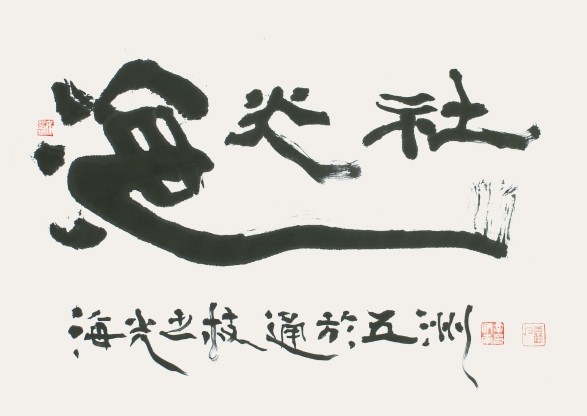 海光社
海光之技通於五洲